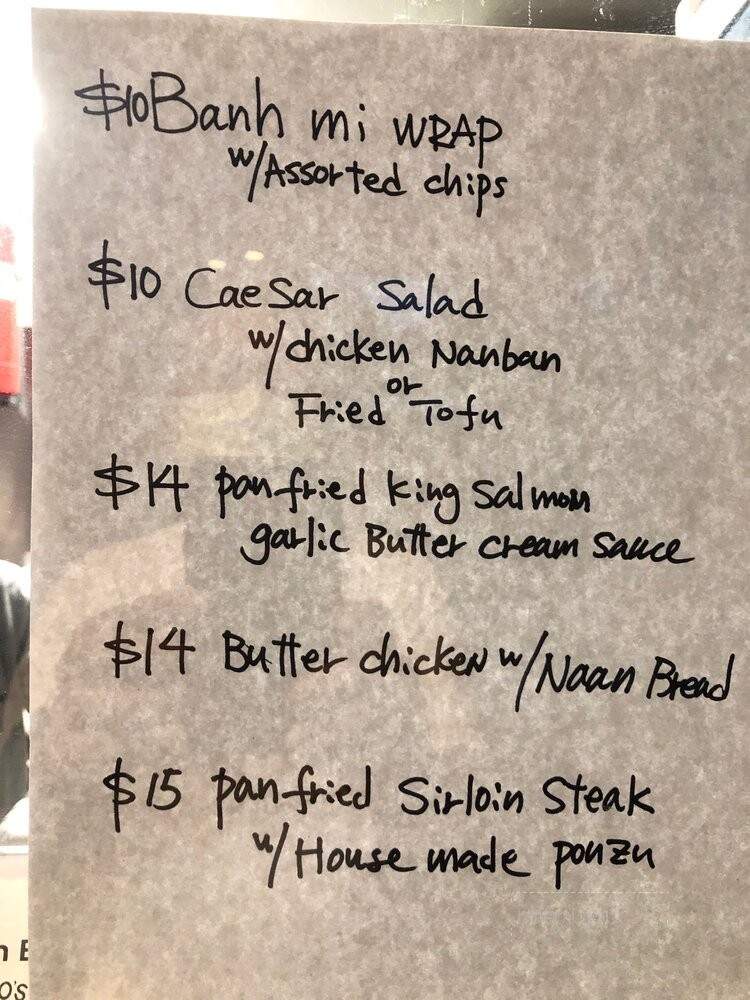 $10 Banh mi WRAP
w/Assorted chips
$10 Caesar Salad
w/chicken Nanban
or
Fried Tofu
$14 pan fried king salmon
garlic Butter cream sauce
$14 Butter chicken w/Naan Bread
$15 pan fried Sirloin Steak
w/House made ponzu